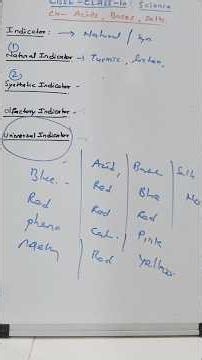 CBSE-CLASS-10: Science
Ch- Acids, Bases, Salts
Indicator: → Natural / Syn
①
Natural Indicator → Turmic,
②
Synthetic Indicator -
Olfactory Indicator -
Universal Indicator
Acid, Base Salt
Blue - Red Blue No
Red Red Red
pheno Col. Pink
Red Yellow